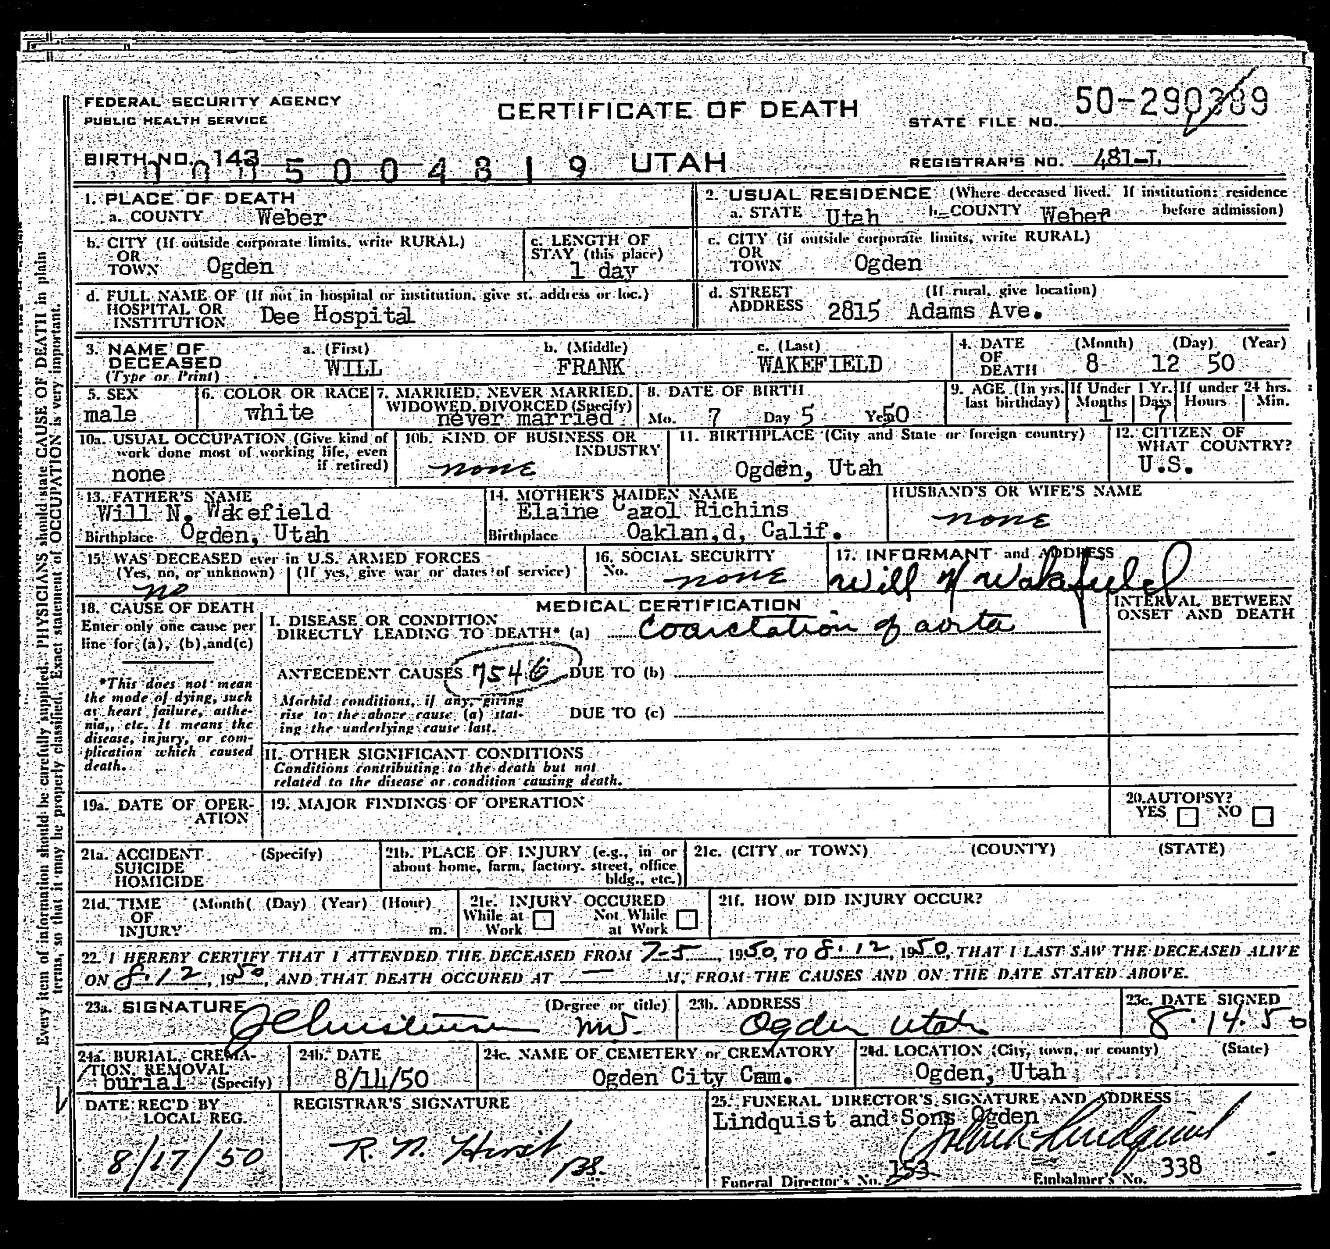 FEDERAL SECURITY AGENCY
PUBLIC HEALTH SERVICE
CERTIFICATE OF DEATH
STATE FILE NO. 50-290289
BIRTH NO. 143
UTAH
REGISTRAR'S NO. 481-L
1. PLACE OF DEATH
a. COUNTY Weber
2. USUAL RESIDENCE (Where deceased lived. If institution: residence before admission)
a. STATE Utah b. COUNTY Weber
b. CITY (If outside corporate limits, write RURAL)
OR
TOWN Ogden
c. LENGTH OF
STAY (this place)
1 day
c. CITY (if outside corporate limits, write RURAL)
OR
TOWN Ogden
d. FULL NAME OF (If not in hospital or institution, give st. address or loc.)
HOSPITAL OR
INSTITUTION Dee Hospital
d. STREET (If rural, give location)
ADDRESS 2815 Adams Ave.
3. NAME OF DECEASED (Type or Print)
a. (First) b. (Middle) c. (Last)
WILL FRANK WAKEFIELD
4. DATE OF DEATH (Month) (Day) (Year)
8 12 50
5. SEX
male
6. COLOR OR RACE
white
7. MARRIED, NEVER MARRIED,
WIDOWED, DIVORCED (Specify)
never married
8. DATE OF BIRTH
Mo. 7 Day 5 Year 50
9. AGE (In yrs. last birthday)
If Under 1 Yr. Months Days
1 7
If under 24 hrs. Hours Min.
10a. USUAL OCCUPATION (Give kind of
work done most of working life, even
if retired)
none
10b. KIND OF BUSINESS OR
INDUSTRY
none
11. BIRTHPLACE (City and State or foreign country)
Ogden, Utah
12. CITIZEN OF
WHAT COUNTRY?
U.S.
13. FATHER'S NAME
Will N. Wakefield
Birthplace Ogden, Utah
14. MOTHER'S MAIDEN NAME
Elaine Carol Richins
Birthplace Oakland, Calif.
HUSBAND'S OR WIFE'S NAME
none
15. WAS DECEASED ever in U.S. ARMED FORCES
(Yes, no, or unknown) (If yes, give war or dates of service)
no
16. SOCIAL SECURITY
No. none
17. INFORMANT and ADDRESS
Will N Wakefield
18. CAUSE OF DEATH
Enter only one cause per
line for (a), (b), and (c)
*This does not mean
the mode of dying, such
as heart failure, asthe-
nia, etc. It means the
disease, injury, or com-
plication which caused
death.
MEDICAL CERTIFICATION
INTERVAL BETWEEN
ONSET AND DEATH
I. DISEASE OR CONDITION
DIRECTLY LEADING TO DEATH* (a) Coarctation of aorta
ANTECEDENT CAUSES 7546 DUE TO (b)
Morbid conditions, if any, giving
rise to the above cause (a) stat-
ing the underlying cause last.
DUE TO (c)
II. OTHER SIGNIFICANT CONDITIONS
Conditions contributing to the death but not
related to the disease or condition causing death.
19a. DATE OF OPER-
ATION
19. MAJOR FINDINGS OF OPERATION
20. AUTOPSY?
YES NO
21a. ACCIDENT (Specify)
SUICIDE
HOMICIDE
21b. PLACE OF INJURY (e.g., in or
about home, farm, factory, street, office
bldg., etc.)
21c. (CITY or TOWN) (COUNTY) (STATE)
21d. TIME (Month) (Day) (Year) (Hour)
OF
INJURY m.
21e. INJURY OCCURED
While at Work Not While at Work
21f. HOW DID INJURY OCCUR?
22. I HEREBY CERTIFY THAT I ATTENDED THE DECEASED FROM 7-5, 1950, TO 8-12, 1950, THAT I LAST SAW THE DECEASED ALIVE
ON 8-12, 1950, AND THAT DEATH OCCURED AT — M, FROM THE CAUSES AND ON THE DATE STATED ABOVE.
23a. SIGNATURE (Degree or title)
MD.
23b. ADDRESS
Ogden Utah
23c. DATE SIGNED
8-14-50
24a. BURIAL, CREMA-
TION, REMOVAL
burial (Specify)
24b. DATE
8/14/50
24c. NAME OF CEMETERY or CREMATORY
Ogden City Cem.
24d. LOCATION (City, town, or county) (State)
Ogden, Utah
DATE REC'D BY
LOCAL REG.
8/17/50
REGISTRAR'S SIGNATURE
25. FUNERAL DIRECTOR'S SIGNATURE AND ADDRESS
Lindquist and Sons Ogden
Funeral Director's No. 153 Embalmer's No. 338
Every item of information should be carefully supplied. PHYSICIANS should state CAUSE OF DEATH in plain
terms, so that it may be properly classified. Exact statement of OCCUPATION is very important.